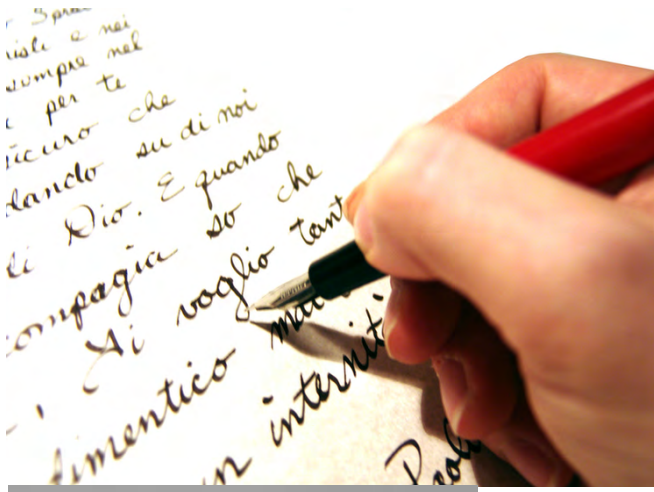 nisti e nei
sempre nel
per te
sicuro che
dando su di noi
di Dio. E quando
compagia so che
Ti voglio tant
dimentico mai
un internit
Paol